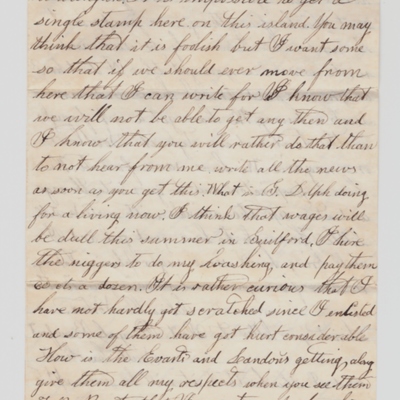 single stamp here on this island. You may
think that it is foolish but I want some
so that if we should ever move from
here that I can write for I know that
we will not be able to get any then and
I know that you will rather do that than
to not hear from me write all the news
as soon as you get this. What is G. Dolph doing
for a living now. I think that wages will
be dull this summer in Guilford, I hire
the niggers to do my washing, and pay them
a dozen. It is rather curious that I
have not hardly got scratched since I enlisted
and some of them have got hurt considerable
How is the and getting along
give them all my respects when you see them